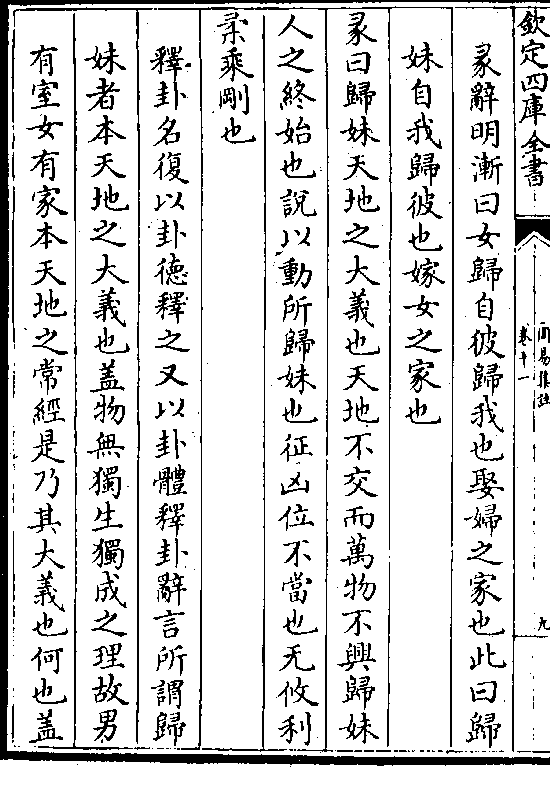 欽定四庫全書
周易集註
卷十一
九
彖辭明漸曰女歸自彼歸我也娶婦之家也此曰歸
妹自我歸彼也嫁女之家也
彖曰歸妹天地之大義也天地不交而萬物不興歸妹
人之終始也說以動所歸妹也征凶位不當也无攸利
柔乘剛也
釋卦名復以卦德釋之又以卦體釋卦辭言所謂歸
妹者本天地之大義也盖物無獨生獨成之理故男
有室女有家本天地之常經是乃其大義也何也盖